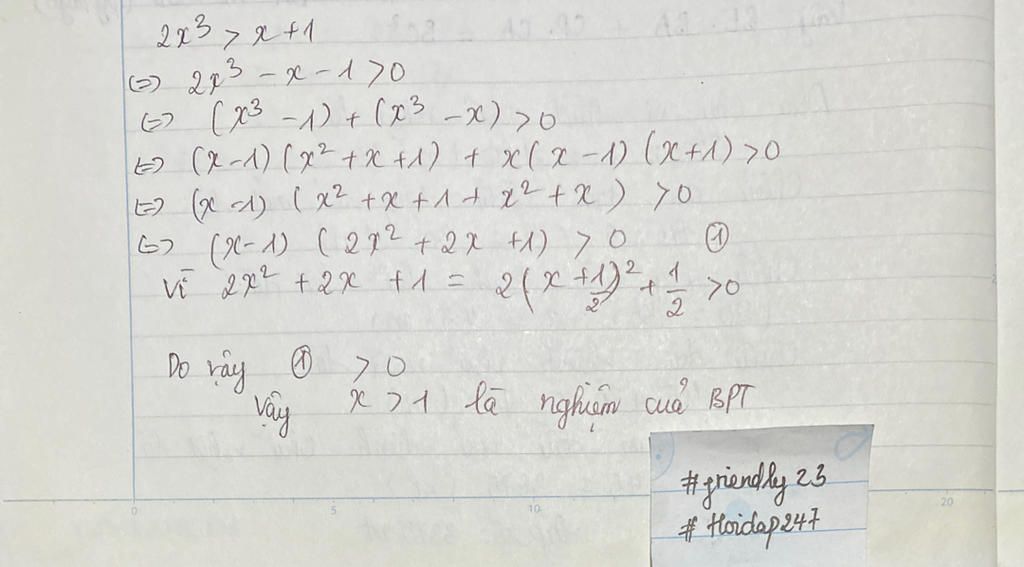 2x³ > x+1
⇔ 2x³ - x - 1 > 0
⇔ (x³ - 1) + (x³ - x) > 0
⇔ (x-1)(x² + x + 1) + x(x-1)(x+1) > 0
⇔ (x-1)(x² + x + 1 + x² + x) > 0
⇔ (x-1)(2x² + 2x + 1) > 0 ①
Vì 2x² + 2x + 1 = 2(x + 1/2)² + 1/2 > 0
Do vậy ① > 0
Vậy x > 1 là nghiệm của BPT
#friendly23
#Hoidap247
0 5 10 20